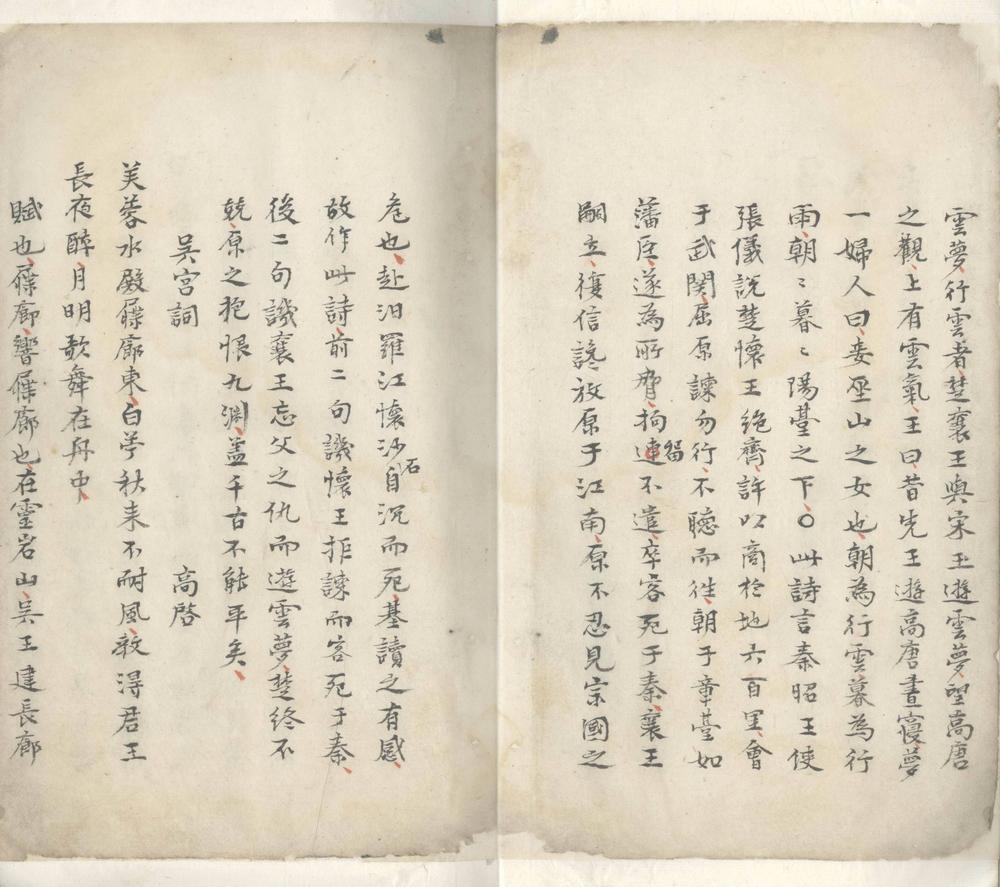 雲夢行雲者楚襄王與宋玉遊雲夢望高唐
之觀上有雲氣王曰昔先王遊高唐晝寢夢
一婦人曰妾巫山之女也朝為行雲暮為行
雨朝〻暮〻陽臺之下〇此詩言秦昭王使
張儀說楚懷王絕齊許以商於地六百里會
于武関屈原諫勿行不聽而徃朝于章臺如
藩臣遂為所脅拘連留不遣卒客死于秦襄王
嗣立復信讒放原于江南原不忍見宗國之
危也赴汨羅江懷沙石自沉而死基讀之有感
故作此詩前二句譏懷王拒諫而客死于秦
後二句譏襄王忘父之仇而遊雲夢楚終不
競原之抱恨九淵盖千古不能平矣
吳宮詞 高啓
芙蓉水殿屧廊東白苧秋来不耐風教得君王
長夜醉月明歌舞在舟中
賦也屧廊響屧廊也在靈岩山吳王建長廊